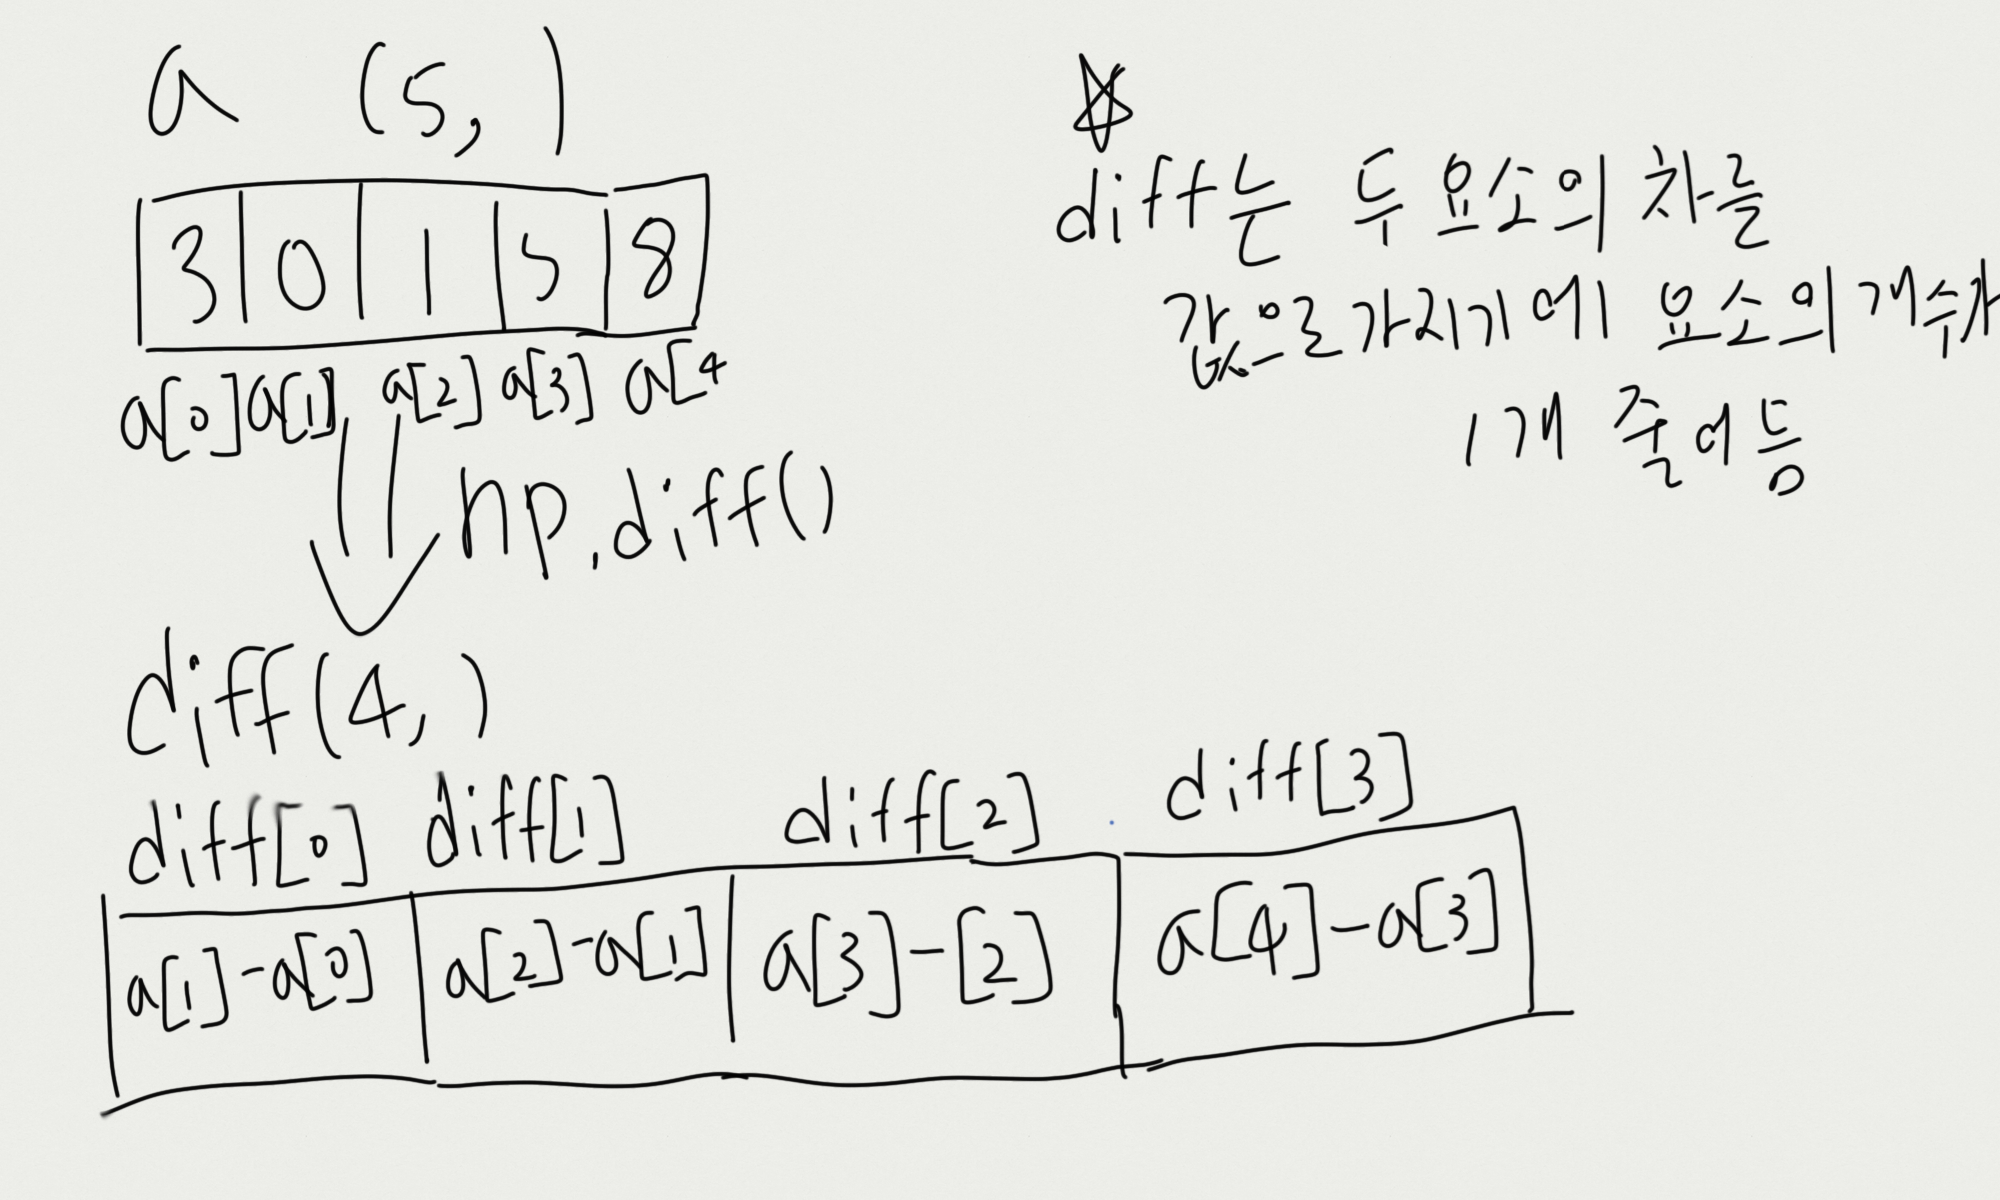 a (5, )
3 0 1 5 8
a[0] a[1] a[2] a[3] a[4
np.diff()
diff(4, )
diff[0] diff[1] diff[2] diff[3]
a[1]-a[0] a[2]-a[1] a[3]-[2] a[4]-a[3]
diff는 두 요소의 차를
값으로 가지기에 요소의 개수가
1개 줄어듬